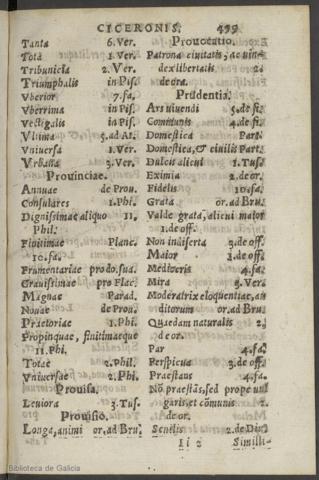 CICERONIS. 499
Tanta 6. Ver.
Tota 1. Ver.
Tribunicia 2. Ver.
Triumphalis in Pis.
Vberior 7. fa.
Vberrima in Pis.
Vectigalis in Pis.
Vltima 5. ad At.
Vniuersa 1. Ver.
Vrbana 3. Ver.
Prouinciae.
Annuae de Prou.
Consulares 1. Phi.
Dignissimae aliquo 11.
Phil.
Finitimae Planc.
10. fa.
Frumentariae pro do. sua.
Grauissimae pro Flac.
Magnae Parad.
Nouae de Prou.
Praetoriae 1. Phi.
Propinquae, finitimaeque
11. Phi.
Totae 2. Phil.
Vniuersae 2. Phi.
Prouisa.
Leuiora 3. Tus.
Prouisio.
Longa, animi or. ad Bru.
Prouocatio.
Patrona ciuitatis, ac uin-
dex libertatis 2.
de ora.
Prudentia.
Ars uiuendi 5. de fi.
Communis 4. de fi.
Domestica Part.
Domestica, & ciuilis Part.
Dulcis alicui 1. Tus.
Eximia 2. de or.
Fidelis 10. fa.
Grata or. ad Bru.
Valde grata, alicui maior
1. de off.
Non indiserta 3. de off.
Maior 1. de off.
Mediocris 4. fa.
Mira 3. Ver.
Moderatrix eloquentiae, au
ditorum or. ad Bru.
Quaedam naturalis 2.
de or.
Par 4. fa.
Perspicua 3. de off.
Praestans 4. fa.
Nō praestās, sed prope uul
garis, et cōmunis 2.
de or.
Senilis 2. de Diu.
Ii 2 Simili-
Biblioteca de Galicia